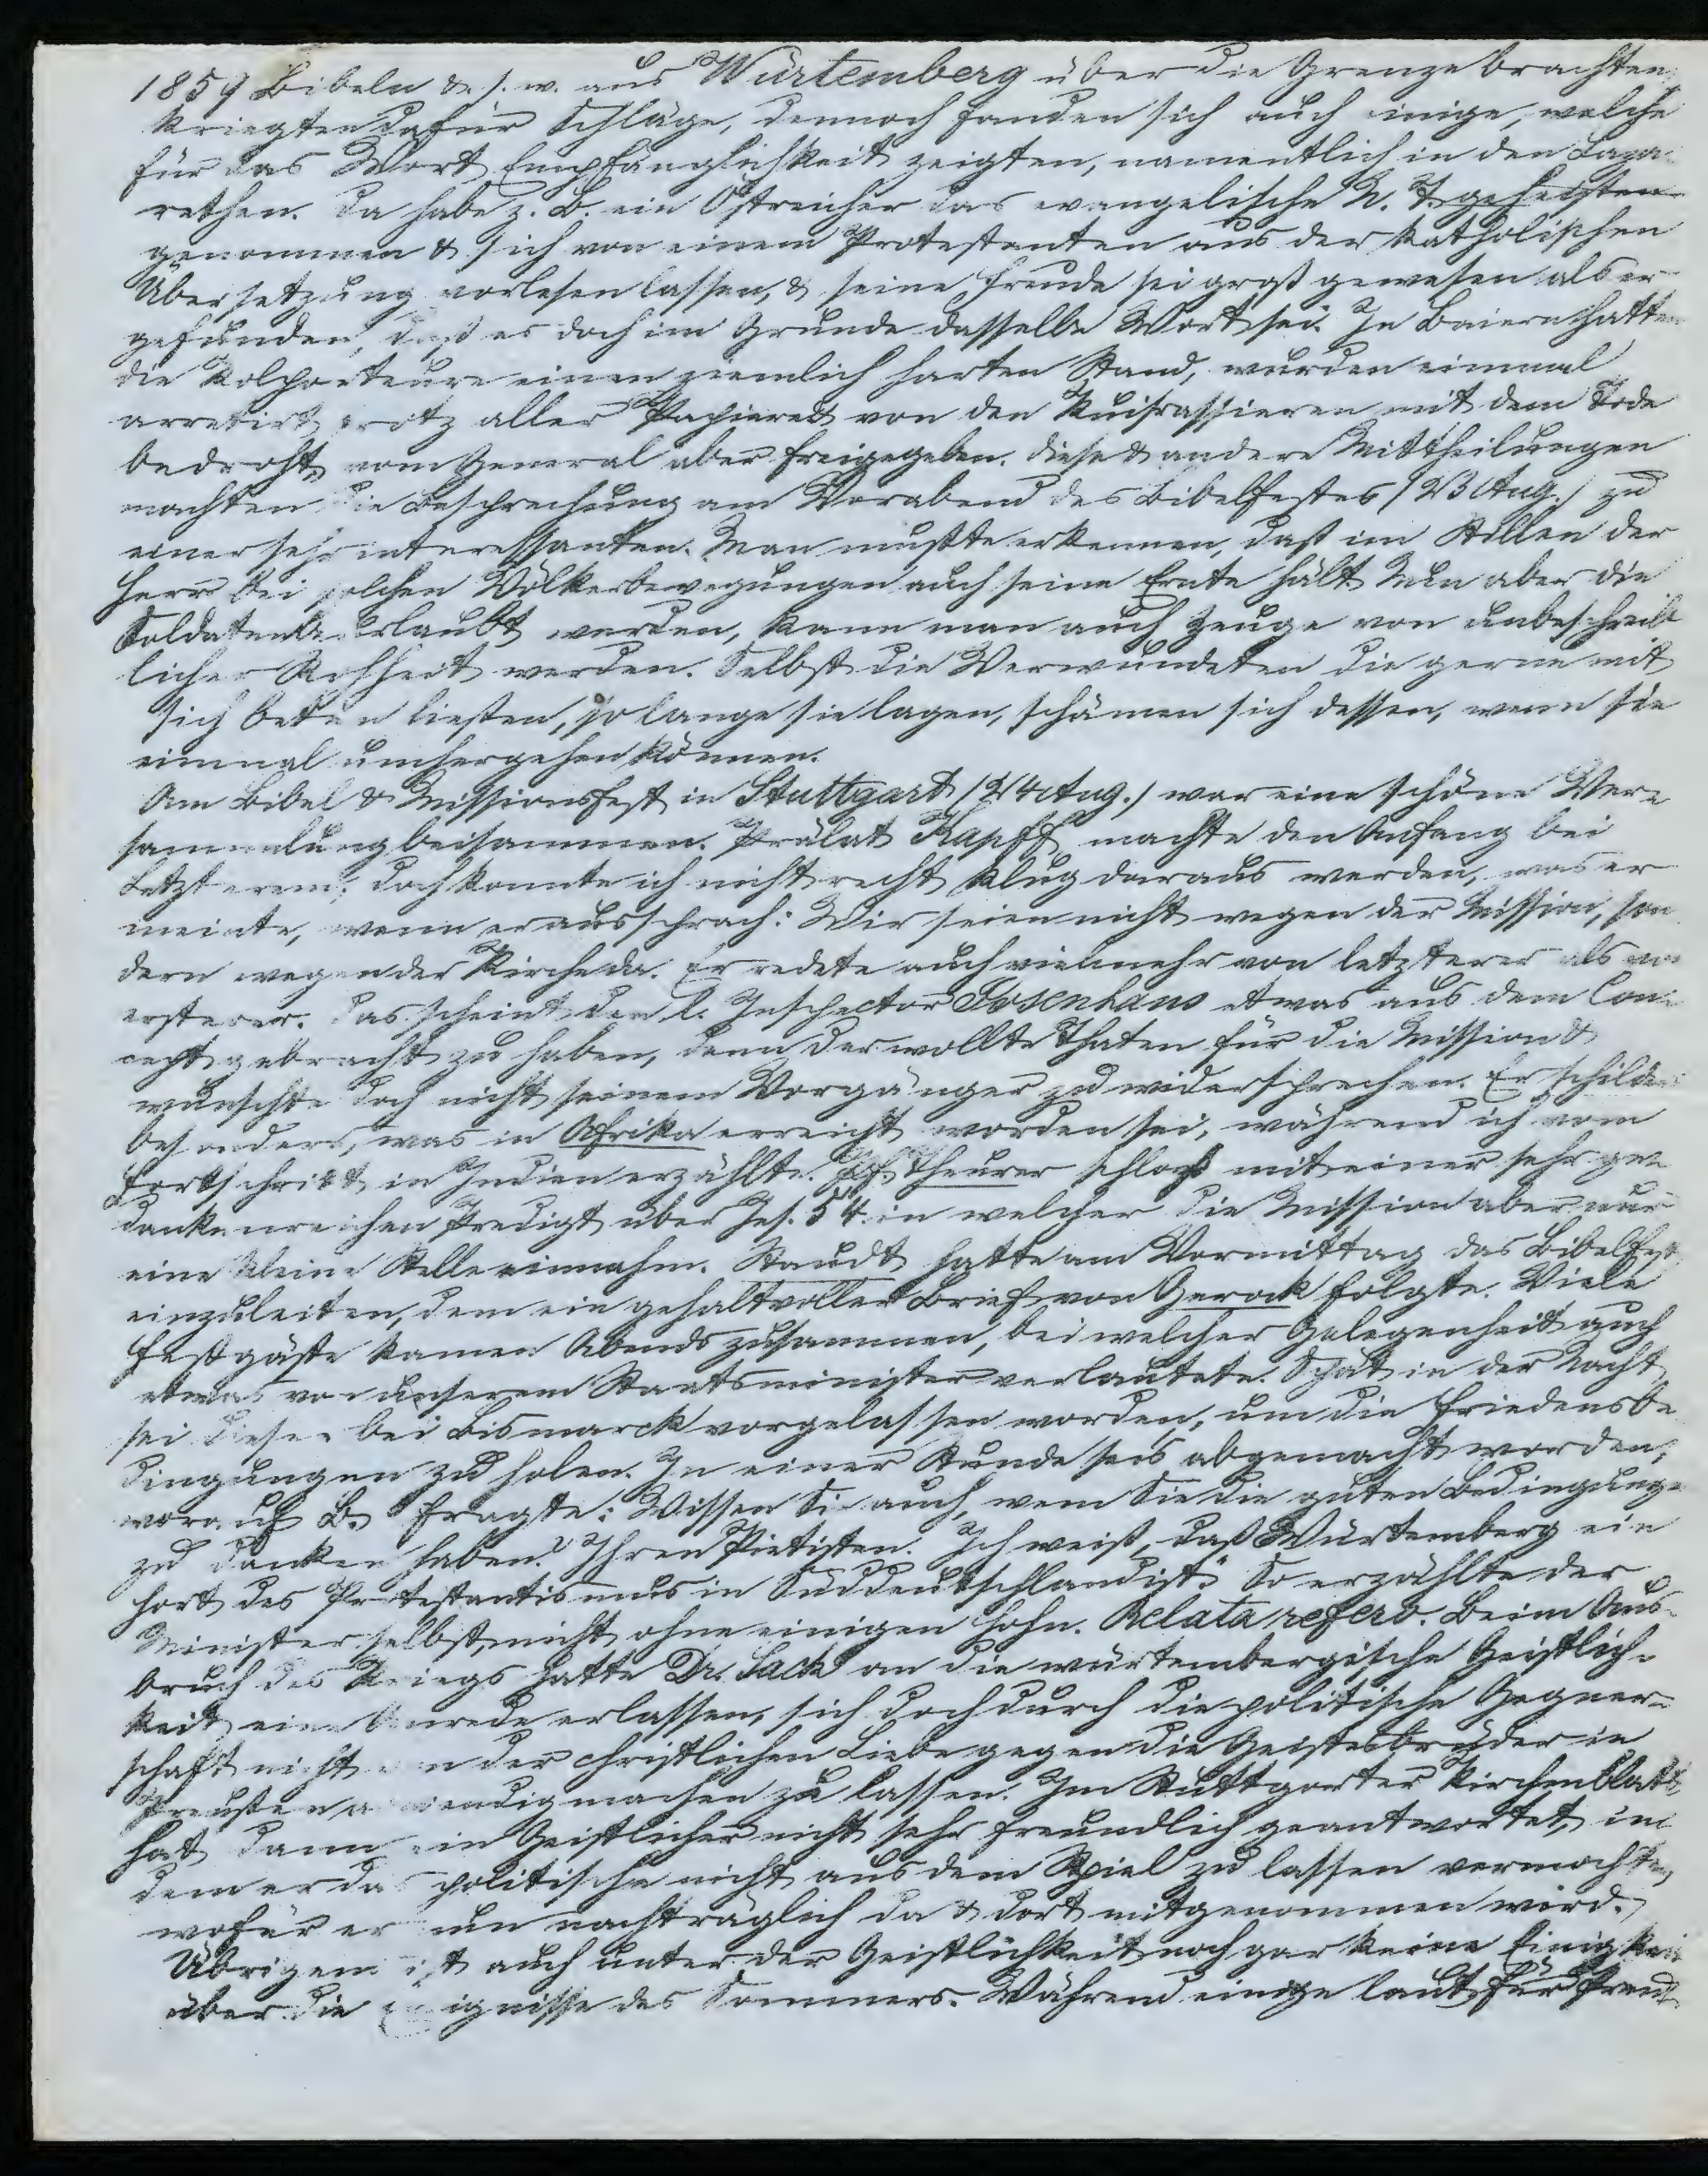 1859 Bibeln & s. w. aus Würtemberg über die Grenze brachten,
kriegten dafür Schläge, dennoch fanden sich auch einige, welche
für das Wort Empfänglichkeit zeigten, namentlich in den Laza-
rethen. Da habe z. B. ein Östreicher das evangelische N. T.
genommen & sich von einem Protestanten aus der katholischen
Übersetzung vorlesen lassen, & seine Freude sei groß gewesen als er
gefunden, daß es doch im Grunde dasselbe Wort sei. In Baiern hatten
die Kolporteure einen ziemlich harten Stand, wurden einmal
arretirt trotz aller Papiere & von den Kuirassieren mit dem Tode
bedroht, vom General aber freigegeben. Diese & andere Mittheilungen
machten die Besprechung am Vorabend des Bibelfestes (23 Aug.) zu
einer sehr interessanten. Man mußte erkennen, daß im Stillen der
Herr bei solchen Völkerbewegungen auch seine Ernte hält. Nun aber die
Soldaten beurlaubt werden, kann man auch Zeuge von unbeschreib-
licher Rohheit werden. Selbst die Verwundeten die gerne mit
sich beten ließen, so lange sie lagen, schämen sich dessen, wenn sie
einmal umhergehen können.
Am Bibel & Missionsfest in Stuttgart (24 Aug.) war eine schöne Ver-
sammlung beisammen. Prälat Kapff machte den Anfang bei
Letzterem; doch konnte ich nicht recht klug daraus werden, was er
meinte, wenn er aussprach: Wir seien nicht wegen der Mission, son-
dern wegen der Kirche da. Er redete auch vielmehr von letzterer als von
ersterer. Das scheint den l. Inspector Josenhans etwas aus dem Con-
cept gebracht zu haben, denn der wollte Thaten für die Mission &
wünschte doch nicht seinem Vorgänger zu widersprechen. Er schilderte
besonders, was in Afrika erreicht worden sei, während ich vom
Fortschritt in Indien erzählte. Pf. Theurer schloß mit einer sehr ge-
dankenreichen Predigt über Jes. 54. in welcher die Mission aber nur
eine kleine Stelle einnahm. Staudt hatte am Vormittag das Bibelfest
einzuleiten, dem ein gehaltvoller Brief von Gerock folgte. Viele
Festgäste kamen Abends zusammen, bei welcher Gelegenheit auch
etwas von unserem Staatsminister verlautete. Spät in der Nacht
sei dieser bei Bismarck vorgelassen worden, um die Friedensbe-
dingungen zu holen. In einer Stunde seis abgemacht worden,
worauf B. fragte: Wissen Sie auch, wem Sie die guten Bedingungen
zu danken haben? Ihren Pietisten. Ich weiß, daß Würtemberg ein
Hort des Protestantismus in Süddeutschland ist." So erzählte der
Minister selbst, nicht ohne einigen Hohn. Relata refero. Beim Aus-
bruch des Kriegs hatte Dr. Sack an die würtembergische Geistlich-
keit eine Anrede erlassen, sich doch durch die politische Gegner-
schaft nicht an der christlichen Liebe gegen die Geistesbrüder in
Preußen machen zu lassen. Im Stuttgarter Kirchenblatt
hat dann ein Geistlicher nicht sehr freundlich geantwortet, in-
dem er das politische nicht aus dem Spiel zu lassen vermochte,
wofür er nun nachträglich da & dort mitgenommen wird.
Übrigens ist auch unter der Geistlichkeit noch gar keine Einigkeit
über die Ereignisse des Sommers. Während einige laut für Preuß-